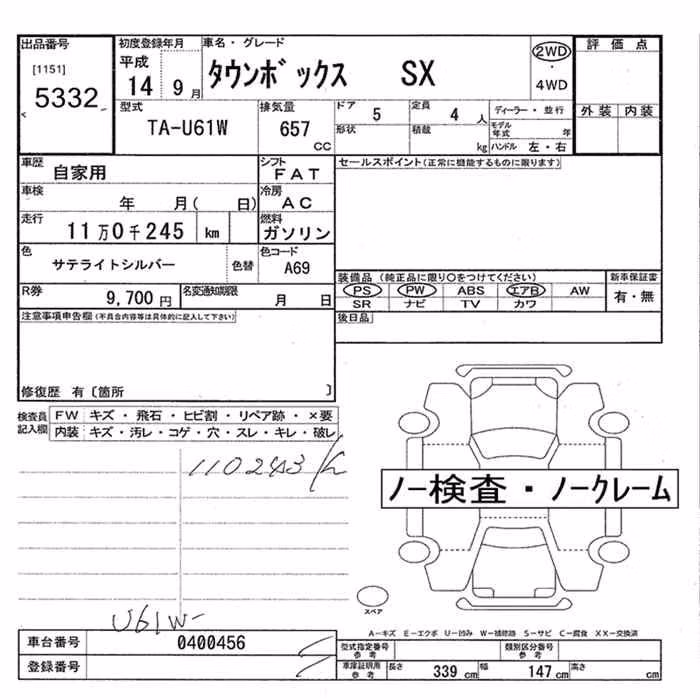 出品番号 初度登録年月 車名・グレード 評価点
[1151] 平成 14 9月 タウンボックス SX 2WD・4WD
5332 外装 内装
型式 TA-U61W 排気量 657 CC ドア 5 定員 4 人 ディーラー・並行
形状 積載 kg モデル年式 年
ハンドル 左・右
車歴 自家用 シフト FAT セールスポイント(正常に機能するものに限ります)
車検 年 月( 日) 冷房 AC
走行 11万0千245 km 燃料 ガソリン
色 サテライトシルバー 色替 色コード A69
装備品(純正品に限り○をつけてください) 新車保証書
PS PW ABS エアB AW 有・無
SR ナビ TV カワ
R券 9,700円 名変通知期限 月 日
後日品
注意事項申告欄(不具合内容等は具体的に記入して下さい)
修復歴 有〔箇所 〕
検査員記入欄 FW キズ・飛石・ヒビ割・リペア跡・×要
内装 キズ・汚レ・コゲ・穴・スレ・キレ・破レ
110243
ノー検査・ノークレーム
スペア
U61W-
A−キズ E−エクボ U−凹み W−補修跡 S−サビ C−腐食 XX−交換済
車台番号 0400456
型式指定番号 参考 類別区分番号 参考
登録番号
車庫証明用 参考 長さ 339 cm 幅 147 cm 高さ cm